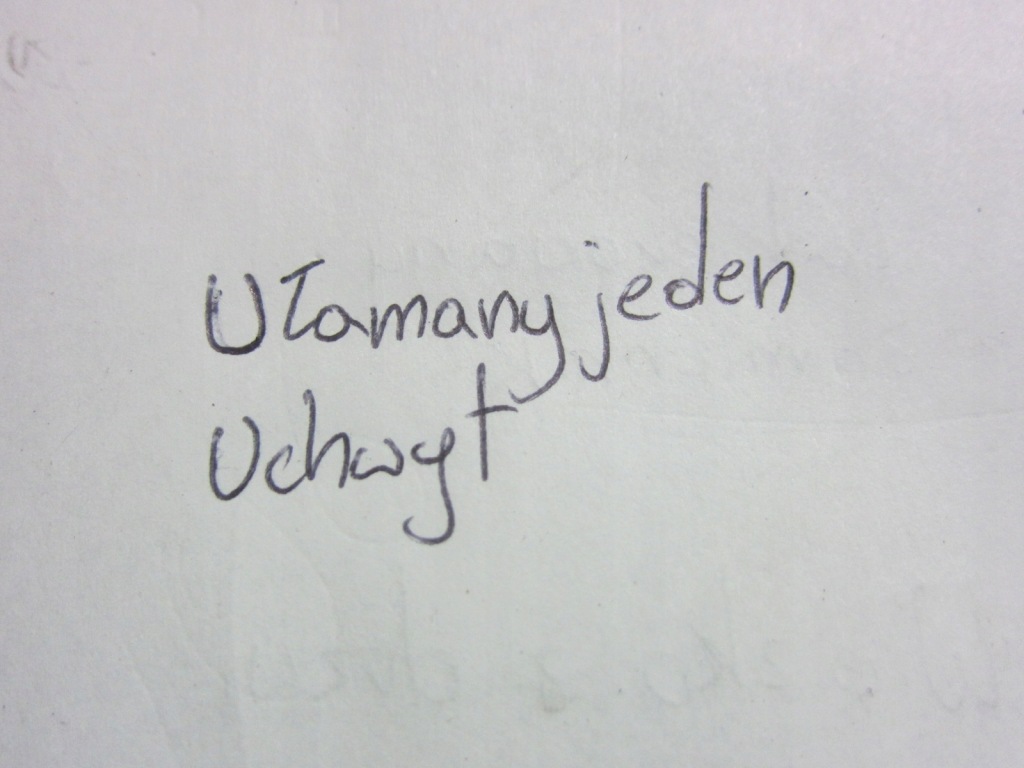 Ułamany jeden
uchwyt